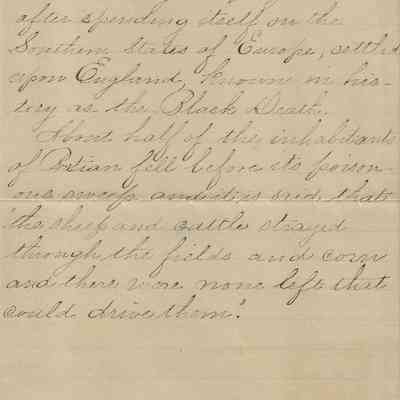 after spending itself on the
Southern States of Europe, settled
upon England, known in his-
tory as the Black Death.
About half of the inhabitants
of Britian fell before its poison-
ous sweep and it is said, that
"the sheep and cattle strayed
through the fields and corn
and there were none left that
could drive them".